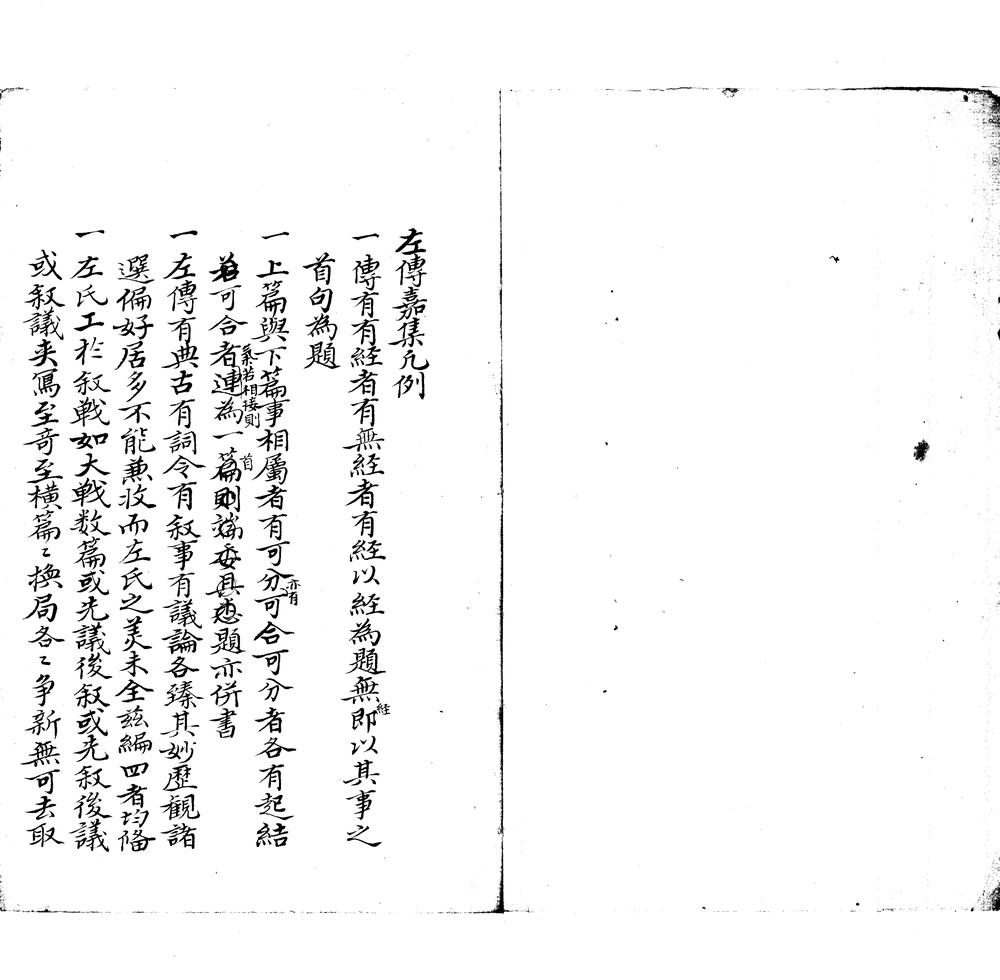 左傳嘉集凡例
一 傳有有経者有無経者有経以経為題無経即以其事之
首句為題
一 上篇與下篇事相屬者有可分亦有可合可分者各有起結
可合者氣若相接則連為一篇首則端委具悉題亦併書
一 左傳有典古有詞令有敘事有議論各臻其妙歷観諸
選偏好居多不能兼收而左氏之美未全茲編四者均俻
一 左氏工於敘戰如大戰数篇或先議後敘或先敘後議
或敘議夹寫至奇至横篇〻換局各〻争新無可去取